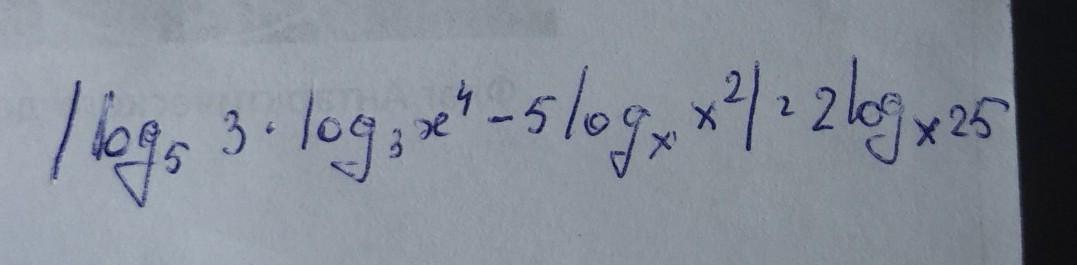 |log₅ 3 · log₃ x⁴ - 5 log ₓ x²| = 2 log ₓ 25